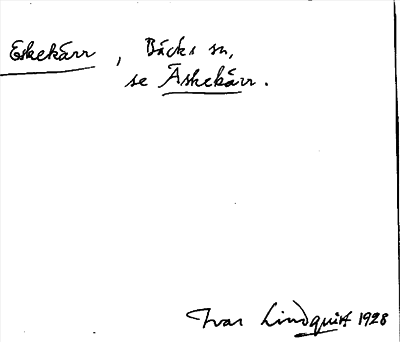 Eskekärr, Bäcks sn,
se Äskekärr.
Ivar Lindquist 1928